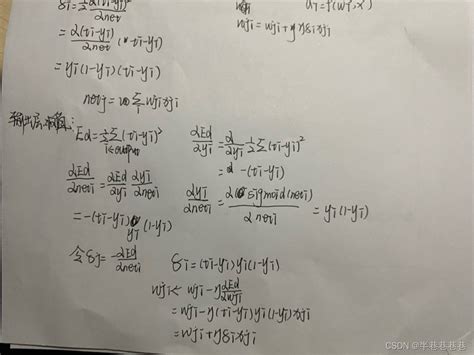 δi=½ ∂(ti-yi)²/∂neti
= ∂(ti-yi)/∂neti (ti-yi)
= yi(1-yi)(ti-yi)
netj = Σ wji xji
wji = wji+ηδixji
Ed=½Σ(ti-yi)² i∈output
∂Ed/∂yi = ∂/∂yi ½Σ(ti-yi)²
= -(ti-yi)
∂Ed/∂neti = ∂Ed/∂yi ∂yi/∂neti
∂yi/∂neti = ∂sigmoid(neti)/∂neti = yi(1-yi)
= -(ti-yi) yi (1-yi)
令δj = -∂Ed/∂neti
δi=(ti-yi)yi(1-yi)
wji← wji-η ∂Ed/∂wji
= wji-η(ti-yi)yi(1-yi)xji
= wji+ηδixji
CSDN @半巷巷巷巷